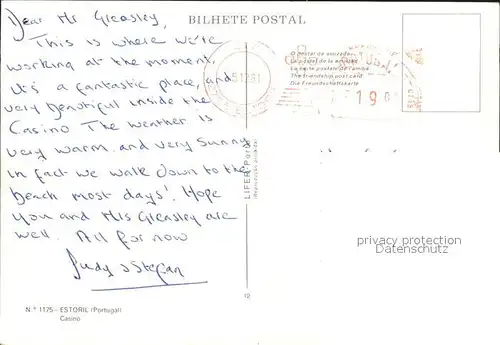 BILHETE POSTAL
Dear Mr Greasley,
This is where we're
working at the moment,
it's a fantastic place, and
very beautiful inside the
Casino The weather is
very warm and very sunny
in fact we walk down to the
beach most days! Hope
you and Mrs Greasley are
well. All for now
Judy & Stefan
Nº 1175 - ESTORIL (Portugal)
Casino
12
LIFER Porto
O postal da amizade
La postal de la amistad
La carte postale de l'amitié
The friendship post card
Die Freundschaftskarte
19
privacy protection
Datenschutz